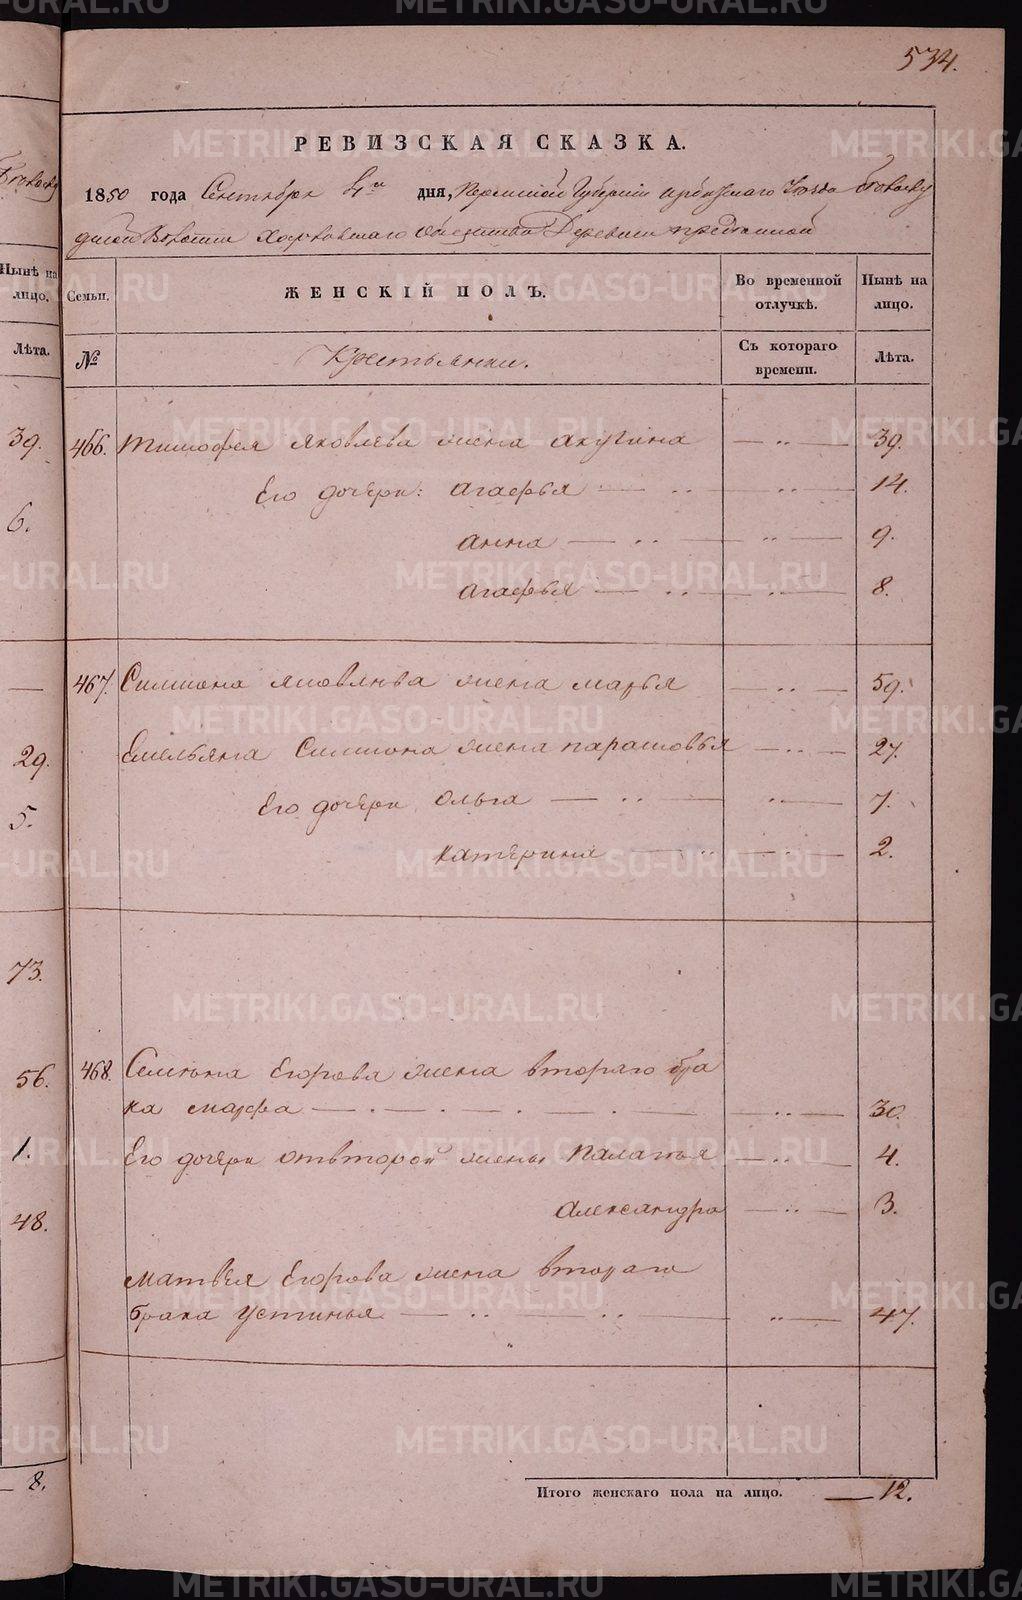 534.
РЕВИЗСКАЯ СКАЗКА.
1850 года Сентября 4го дня, Пермской Губернии Уѣзда
Волости Деревни
Семьи. ЖЕНСКІЙ ПОЛЪ. Во временной отлучкѣ. Нынѣ на лицо.
№ Крестьянки. Съ котораго времени. Лѣта.
466. Тимофея Яковлева жена Акулина — .. — 39.
Его дочери: Агафья — .. — .. — 14.
Анна — .. — .. — 9.
Агафья — .. — .. — 8.
467. Симиона Яковлева жена Марья — .. — 59.
Емельяна Симиона жена Парасковья — .. — 27.
Его дочери Ольга — .. — .. — 7.
Катерина — .. — .. — 2.
468. Семиона Егорова жена втораго бра
ка Марфа — . — . — . — .. — 30.
Его дочери отвторой жены Палагья — .. — 4.
Александра — .. — 3.
Матвѣя Егорова жена втораго
брака Устинья — .. — .. — .. — 47.
Итого женскаго пола на лицо. — 12.
Нынѣ на лицо.
Лѣта.
39.
6.
—
29.
5.
73.
56.
1.
48.
— 8.
METRIKI.GASO-URAL.RU